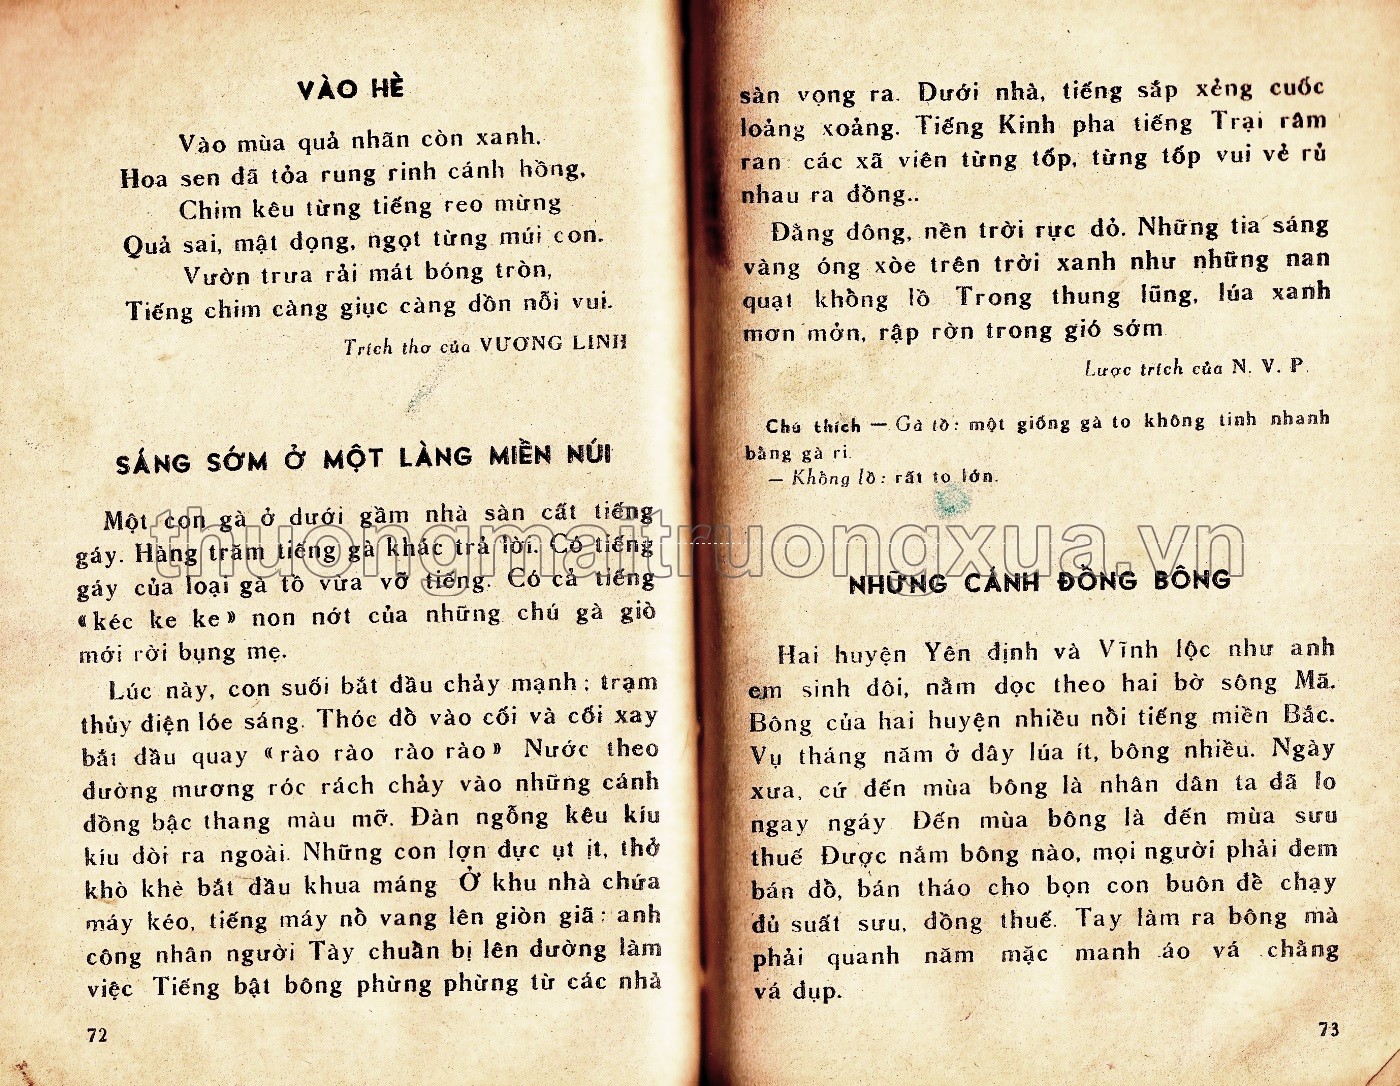 VÀO HÈ
Vào mùa quả nhãn còn xanh.
Hoa sen đã tỏa rung rinh cánh hồng,
Chim kêu từng tiếng reo mừng
Quả sai, mật đọng, ngọt từng múi con.
Vườn trưa rải mát bóng tròn,
Tiếng chim càng giục càng dồn nỗi vui.
Trích thơ của VƯƠNG LINH
SÁNG SỚM Ở MỘT LÀNG MIỀN NÚI
Một con gà ở dưới gầm nhà sàn cất tiếng
gáy. Hàng trăm tiếng gà khác trả lời. Có tiếng
gáy của loại gà tồ vừa vỡ tiếng. Có cả tiếng
«kéc ke ke» non nớt của những chú gà giò
mới rời bụng mẹ.
Lúc này, con suối bắt đầu chảy mạnh: trạm
thủy điện lóe sáng. Thóc đồ vào cối và cối xay
bắt đầu quay «rào rào rào rào» Nước theo
đường mương róc rách chảy vào những cánh
đồng bậc thang màu mỡ. Đàn ngỗng kêu kíu
kíu đòi ra ngoài. Những con lợn đực ụt ịt, thở
khò khè bắt đầu khua máng Ở khu nhà chứa
máy kéo, tiếng máy nổ vang lên giòn giã: anh
công nhân người Tày chuẩn bị lên đường làm
việc Tiếng bật bông phừng phừng từ các nhà
72
sàn vọng ra. Dưới nhà, tiếng sắp xẻng cuốc
loảng xoảng. Tiếng Kinh pha tiếng Trại râm
ran các xã viên từng tốp, từng tốp vui vẻ rủ
nhau ra đồng..
Đằng đông, nền trời rực đỏ. Những tia sáng
vàng óng xòe trên trời xanh như những nan
quạt khồng lồ Trong thung lũng, lúa xanh
mơn mởn, rập rờn trong gió sớm
Lược trích của N. V. P.
Chú thích — Gà tồ: một giống gà to không tinh nhanh
bằng gà ri.
— Khồng lồ: rất to lớn.
thuongmaitruongxua.vn
NHỮNG CÁNH ĐỒNG BÔNG
Hai huyện Yên định và Vĩnh lộc như anh
em sinh đôi, nằm dọc theo hai bờ sông Mã.
Bông của hai huyện nhiều nổi tiếng miền Bắc.
Vụ tháng năm ở đây lúa ít, bông nhiều. Ngày
xưa, cứ đến mùa bông là nhân dân ta đã lo
ngay ngáy Đến mùa bông là đến mùa sưu
thuế Được nắm bông nào, mọi người phải đem
bán đồ, bán tháo cho bọn con buôn đề chạy
đủ suất sưu, đồng thuế. Tay làm ra bông mà
phải quanh năm mặc manh áo vá chằng
vá đụp.
73